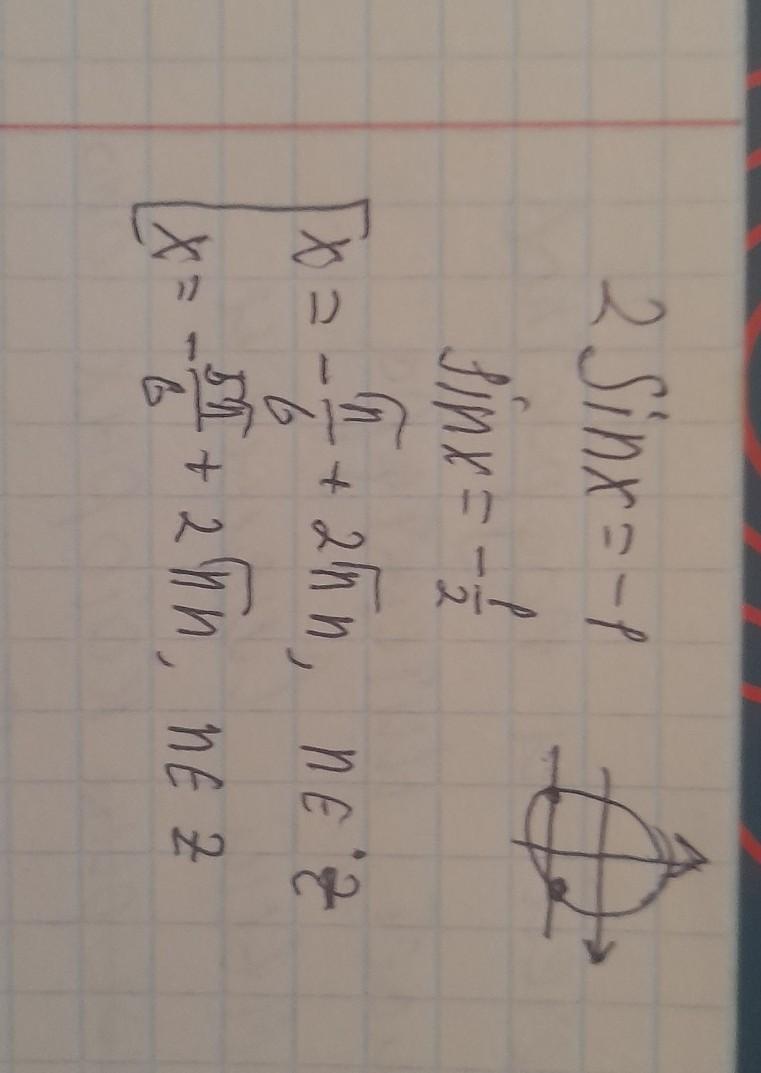 2 sin x = -1
sin x = -1/2
[ x = -π/6 + 2πn, n ∈ Z
x = -5π/6 + 2πn, n ∈ Z